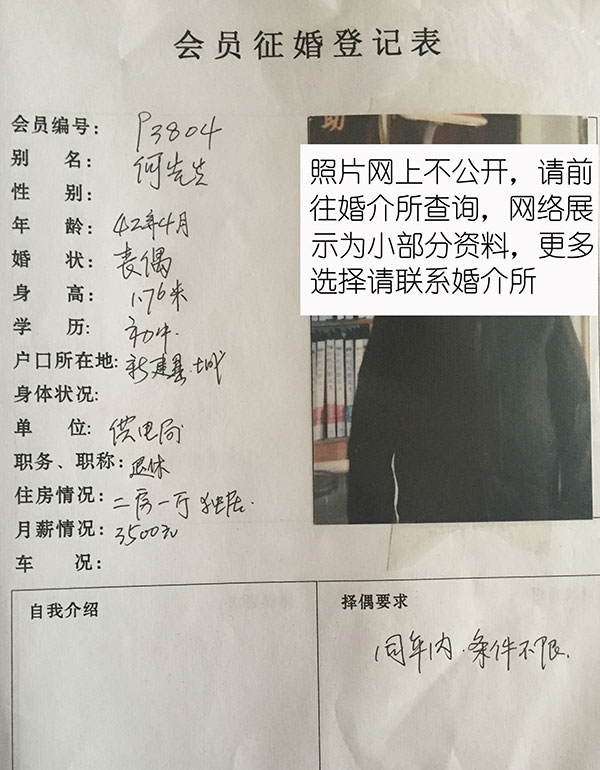 会员征婚登记表
会员编号: P3804
别 名: 何先生
性 别:
年 龄: 42年4月
婚 状: 丧偶
身 高: 1.76米
学 历: 初中
户口所在地: 新建县城
身体状况:
单 位: 供电局
职务、职称: 退休
住房情况: 二房一厅 独居.
月薪情况: 3500元
车 况:
助
照片网上不公开，请前
往婚介所查询，网络展
示为小部分资料，更多
选择请联系婚介所
自我介绍
择偶要求
周年内.条件不限.